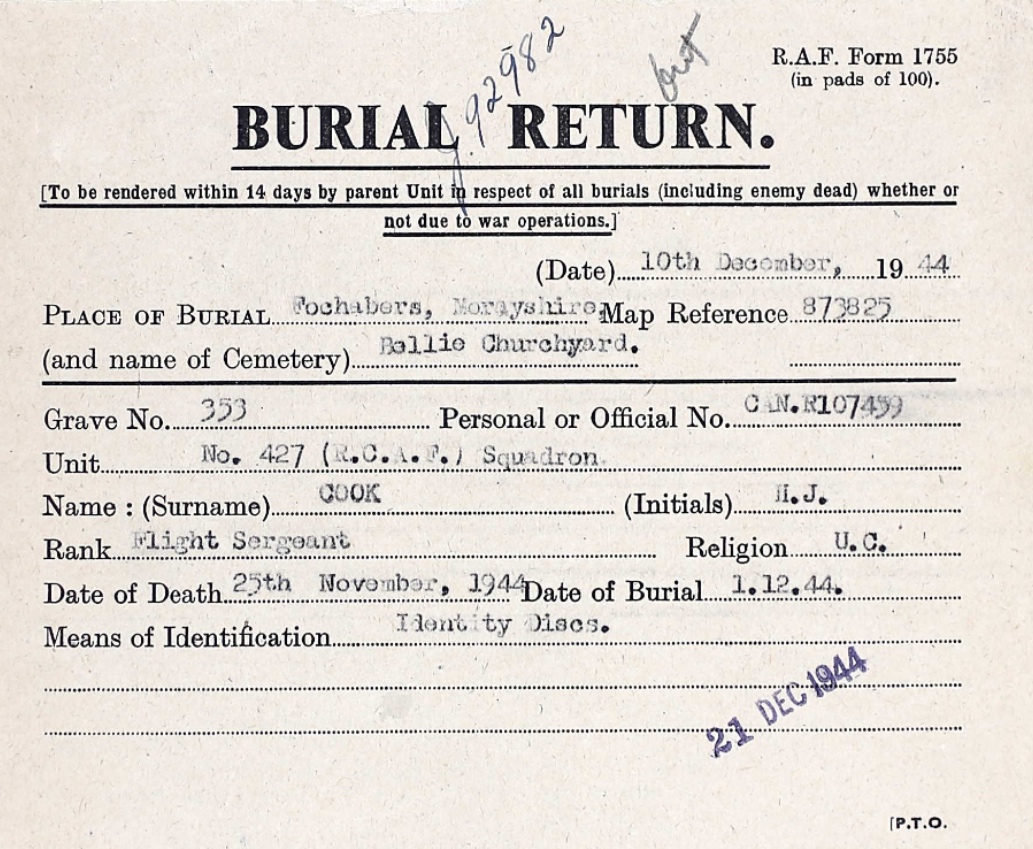 J.92982
R.A.F. Form 1755
(in pads of 100).
BURIAL RETURN.
[To be rendered within 14 days by parent Unit in respect of all burials (including enemy dead) whether or
not due to war operations.]
(Date) 10th December, 19 44
PLACE OF BURIAL Fochabers, Morayshire. Map Reference 873825
(and name of Cemetery) Bellie Churchyard.
Grave No. 353 Personal or Official No. CAN.R107459
Unit No. 427 (R.C.A.F.) Squadron.
Name : (Surname) COOK (Initials) J.
Rank Flight Sergeant Religion U.C.
Date of Death 25th November, 1944 Date of Burial 1.12.44.
Means of Identification Identity Discs.
21 DEC 1944
[P.T.O.